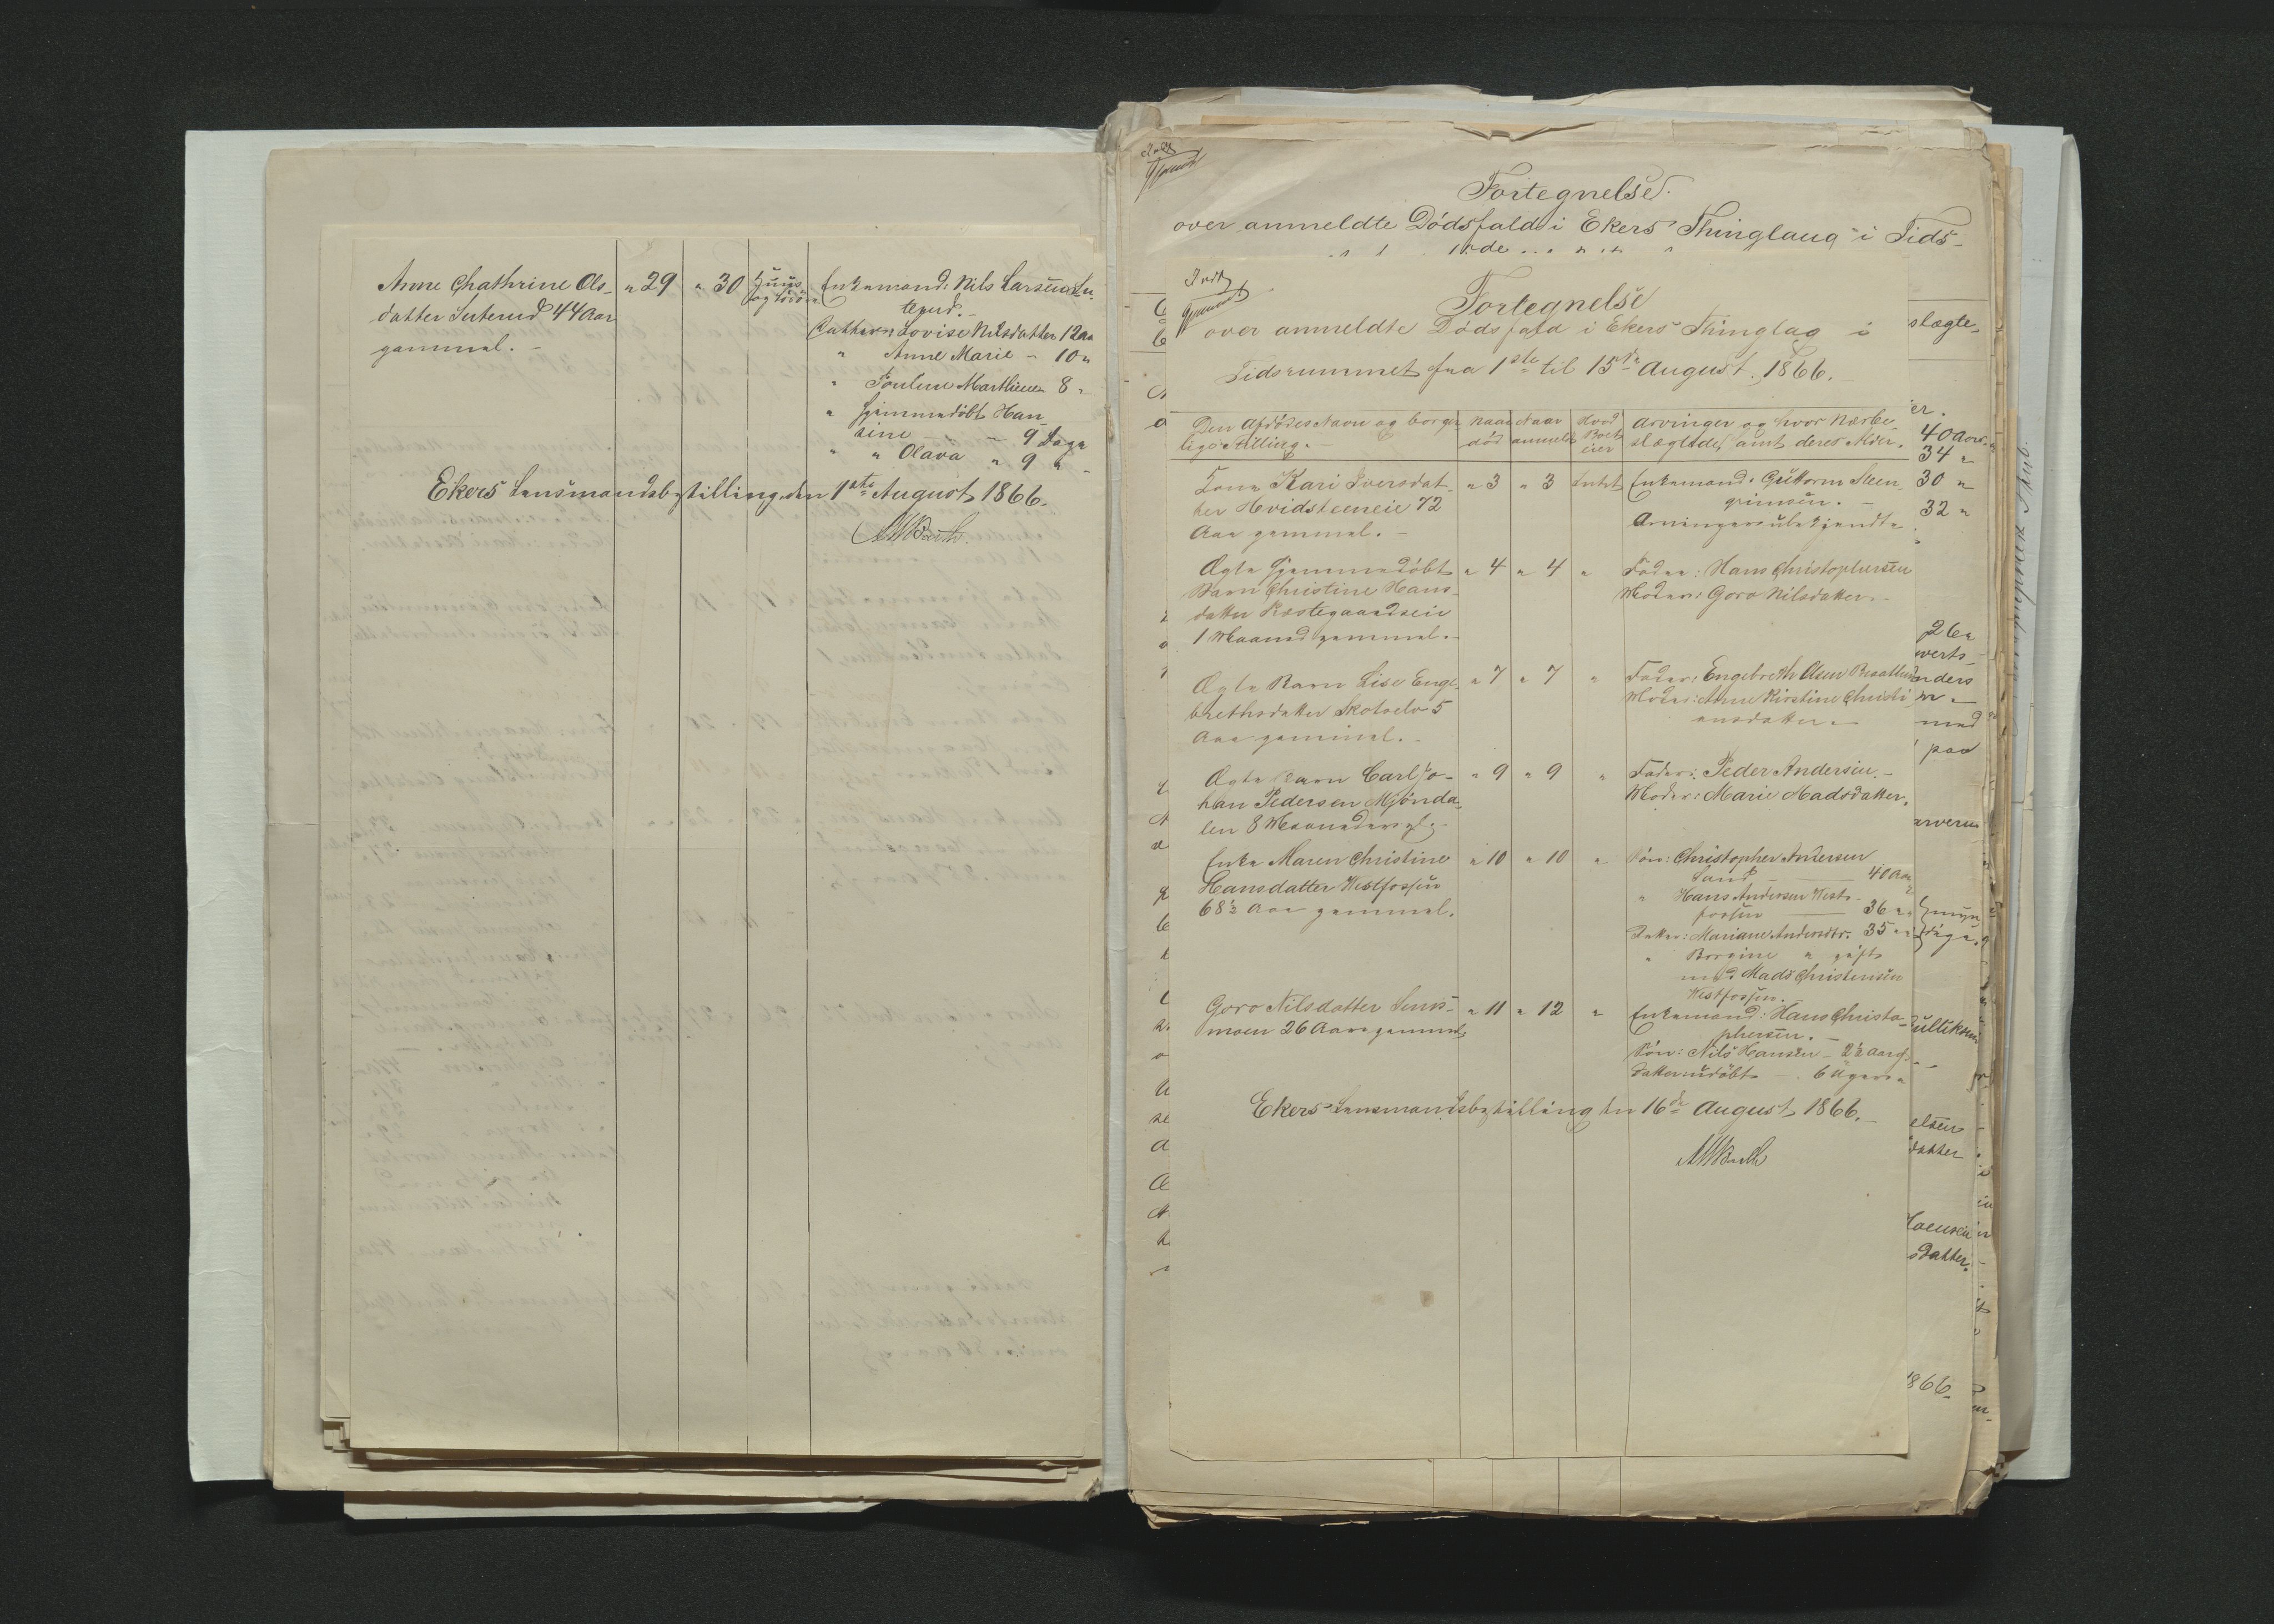 Anne Chathrine Ols-
datter Suterud 44 Aar
gammel. -
" 29 " 30
og Løsøre
Enkemand: Nils Larsen Su-
terud. -
Cathrin Lovise Nilsdatter 12 Aar
" Anne Marie - 10 "
" Pouline Marthine 8 "
" hjemmedøbt Han-
sine - 9 Dage
" " Olava " 9 "
Ekers Lensmandsbestilling den 1ste August 1866.
Fortegnelse
over anmeldte Dødsfald i Ekers Thinglaug i Tids-
Fortegnelse
over anmeldte Dødsfald i Ekers Thinglag i
Tidsrummet fra 1ste til 15de August 1866.
Den Afdødes Navn og borger-
lige Stilling. -
Naar
død
Naar
anmeldt
Hvad
Boet
eier
Arvinger og hvor Nærbe-
slægtede, samt deres Alder.
Kone Kari Iversdat-
ter Hvidsteneie 72
Aar gammel. -
" 3 " 3 Intet
Enkemand: Guttorm Steen-
grimsen. -
Arvinger ubekjendte
Ægte hjemmedøbt
Barn Christine Hans-
datter Præstegaardseie
1 Maaned gammel. -
" 4 " 4 "
Fader: Hans Christophersen
Moder: Goro Nilsdatter. -
Ægte Barn Lise Enge-
brethsdatter Skotselv 5
Aar gammel. -
" 7 " 7 "
Fader: Engebreth Olsen Braathen
Moder: Anne Kirstine Christi-
ansdatter. -
Ægte Barn Carl Jo-
han Pedersen Mjønda-
len 8 Maaneder gl. -
" 9 " 9 "
Fader: Peder Andersen. -
Moder: Marie Madsdatter.
Enke Maren Christine
Hansdatter Westfossen
68½ Aar gammel.
" 10 " 10 "
Søn: Christopher Andersen
Sand - 40 Aar
" Hans Andersen West-
fossen - 36 "
Datter: Mariane Andersdtr. 35 "
" Borgine " gift
med Mads Christensen
Westfossen.
Goro Nilsdatter Lens-
moen 26 Aar gammel
" 11 " 12 "
Enkemand: Hans Christo-
phersen. -
Søn: Nils Hansen - 2½ Aar gl.
Datter udøbt - 6 Uger "
Ekers Lensmandsbestilling den 16de August 1866. -
slægte-
er.
40 Aar
34 "
30 "
32 "
verts-
nders
med
paa
arven
datter
Hansen
sdatter.
1866.